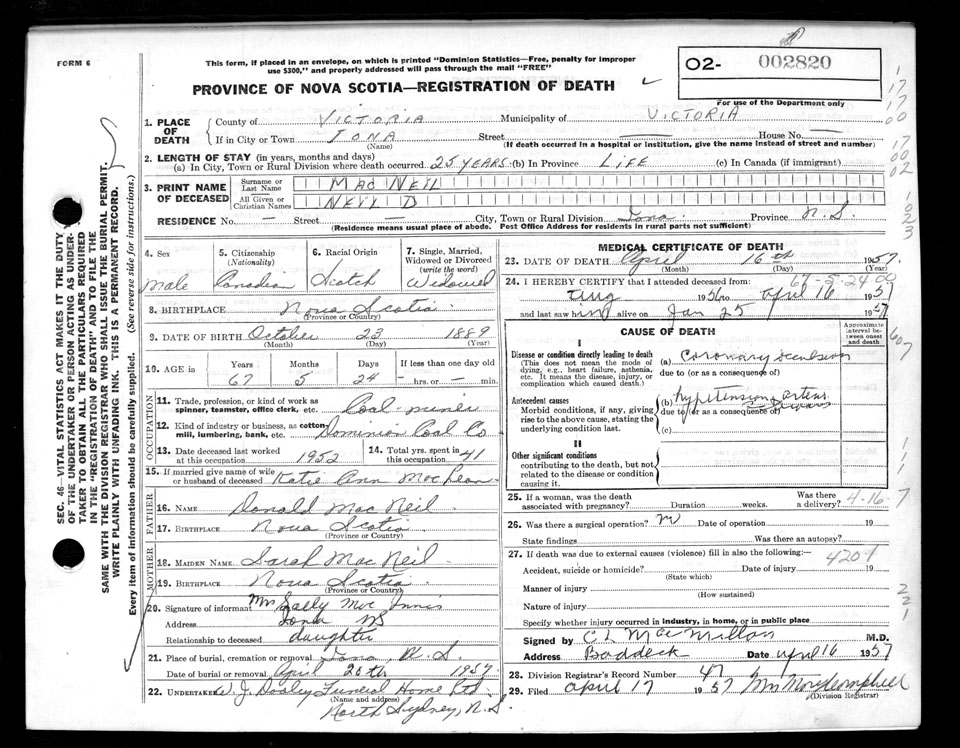 FORM 6
This form, if placed in an envelope, on which is printed "Dominion Statistics—Free, penalty for improper
use $300," and properly addressed will pass through the mail "FREE"
PROVINCE OF NOVA SCOTIA—REGISTRATION OF DEATH
O2- 002820
For use of the Department only
SEC. 46—VITAL STATISTICS ACT MAKES IT THE DUTY
OF THE UNDERTAKER OR PERSON ACTING AS UNDER-
TAKER TO OBTAIN ALL THE PARTICULARS REQUIRED
IN THE "REGISTRATION OF DEATH" AND TO FILE THE
SAME WITH THE DIVISION REGISTRAR WHO SHALL ISSUE THE BURIAL PERMIT.
WRITE PLAINLY WITH UNFADING INK. THIS IS A PERMANENT RECORD.
Every item of information should be carefully supplied. (See reverse side for instructions.)
1. PLACE OF DEATH County of VICTORIA Municipality of VICTORIA
If in City or Town IONA Street — House No. —
(Name) (If death occurred in a hospital or institution, give the name instead of street and number)
2. LENGTH OF STAY (in years, months and days)
(a) In City, Town or Rural Division where death occurred 25 YEARS (b) In Province LIFE (c) In Canada (if immigrant)
3. PRINT NAME OF DECEASED
Surname or Last Name MAC NEIL
All Given or Christian Names NEIL D
RESIDENCE No. — Street — City, Town or Rural Division Iona Province N.S.
(Residence means usual place of abode. Post Office Address for residents in rural parts not sufficient)
4. Sex 5. Citizenship (Nationality) 6. Racial Origin 7. Single, Married, Widowed or Divorced (write the word)
Male Canadian Scotch Widowed
8. BIRTHPLACE Nova Scotia
(Province or Country)
9. DATE OF BIRTH October 23 1889
(Month) (Day) (Year)
10. AGE in Years Months Days If less than one day old
67 5 24 — hrs. or — min.
OCCUPATION
11. Trade, profession, or kind of work as
spinner, teamster, office clerk, etc. Coal-miner
12. Kind of industry or business, as cotton
mill, lumbering, bank, etc. Dominion Coal Co
13. Date deceased last worked at this occupation 1952 14. Total yrs. spent in this occupation 41
15. If married give name of wife
or husband of deceased Katie Ann MacLean
FATHER
16. NAME Donald Mac Neil
17. BIRTHPLACE Nova Scotia
(Province or Country)
MOTHER
18. MAIDEN NAME Sarah Mac Neil
19. BIRTHPLACE Nova Scotia
(Province or Country)
20. Signature of informant Mrs Sally Mac Innis
Address Iona NS
Relationship to deceased daughter
21. Place of burial, cremation or removal Iona, N.S.
Date of burial or removal April 20th 1957
22. UNDERTAKER W. J. Dooley Funeral Home Ltd
(Name and address)
North Sydney, N.S.
MEDICAL CERTIFICATE OF DEATH
23. DATE OF DEATH April 16th 1957.
(Month) (Day) (Year)
67-5-24
24. I HEREBY CERTIFY that I attended deceased from:
Aug 1956 to April 16 1957
and last saw him alive on Jan 25 1957
CAUSE OF DEATH
Approximate interval between onset and death
I
Disease or condition directly leading to death
(This does not mean the mode of dying, e.g., heart failure, asthenia, etc. It means the disease, injury, or complication which caused death.)
(a) Coronary Occlusion
due to (or as a consequence of)
Antecedent causes
Morbid conditions, if any, giving rise to the above cause, stating the underlying condition last.
(b) hypertension
due to (or as a consequence of)
(c)
II
Other significant conditions
contributing to the death, but not related to the disease or condition causing it.
25. If a woman, was the death associated with pregnancy? Duration weeks. Was there a delivery?
4-16-7
26. Was there a surgical operation? Date of operation 19
State findings Was there an autopsy?
27. If death was due to external causes (violence) fill in also the following:—
4201
Accident, suicide or homicide? Date of injury 19
(State which)
Manner of injury
(How sustained)
Nature of injury
Specify whether injury occurred in industry, in home, or in public place
Signed by C L MacMillan M.D.
Address Baddeck Date April 16 1957
28. Division Registrar's Record Number 47
29. Filed April 17 1957
(Division Registrar)